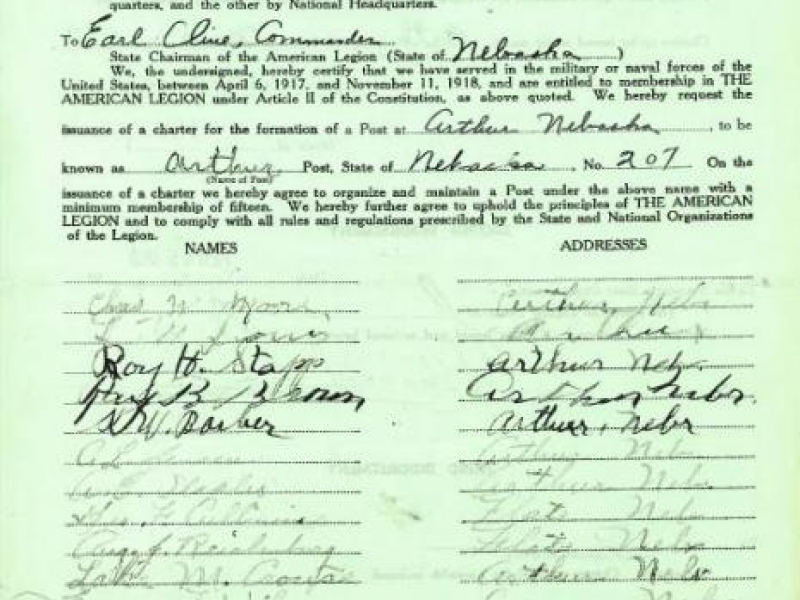 quarters, and the other by National Headquarters.
To Earl Cline, Commander
State Chairman of the American Legion (State of Nebraska )
We, the undersigned, hereby certify that we have served in the military or naval forces of the
United States, between April 6, 1917, and November 11, 1918, and are entitled to membership in THE
AMERICAN LEGION under Article II of the Constitution, as above quoted. We hereby request the
issuance of a charter for the formation of a Post at Arthur Nebraska, to be
known as Arthur Post, State of Nebraska. No. 207 On the
(Name of Post)
issuance of a charter we hereby agree to organize and maintain a Post under the above name with a
minimum membership of fifteen. We hereby further agree to uphold the principles of THE AMERICAN
LEGION and to comply with all rules and regulations prescribed by the State and National Organizations
of the Legion.
NAMES ADDRESSES
Chas W. Moore Arthur, Nebr
Arthur
Roy H. Stapp Arthur Nebr.
B. Brown Arthur Nebr.
Barber Arthur, Nebr
Arthur Nebr
Arthur Nebr
Flats Nebr
Flats Nebr
M. Arthur Nebr
Nebr